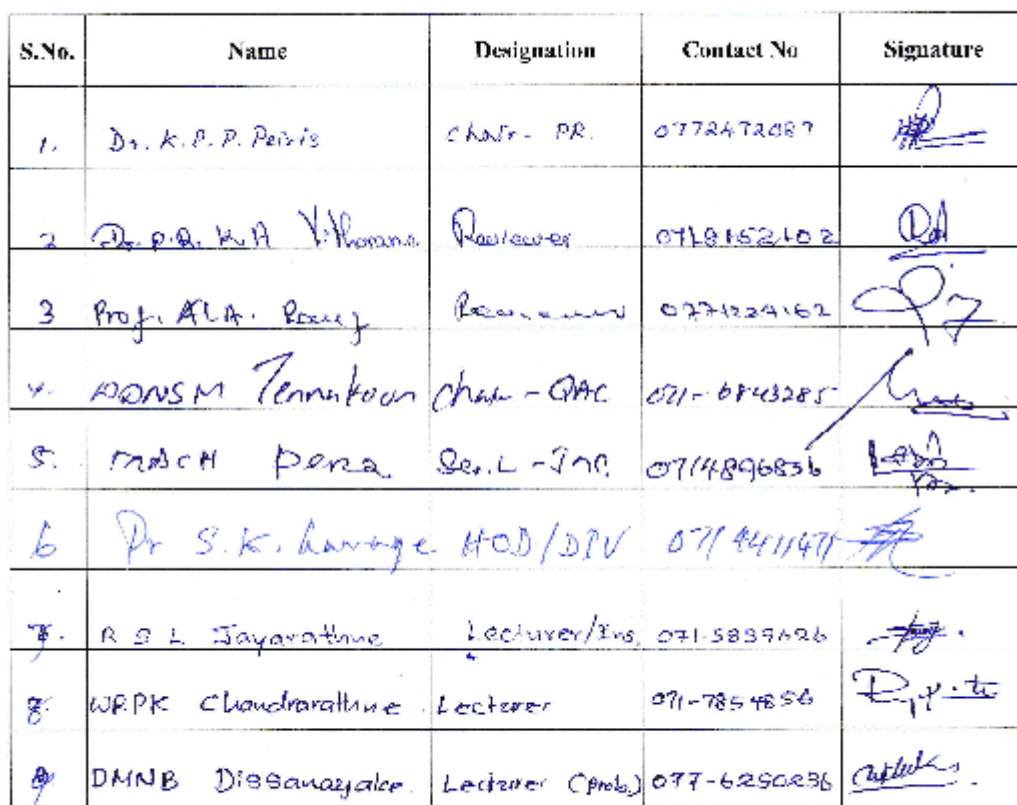 S.No. Name Designation Contact No Signature
1. Dr. K.P.P. Peiris Chair - PR. 0772472087
2 Dr. P.R. K.A Vitharana Reviewer 0718152102
3 Prof. A.L.A. Rauf 0771224162
4. DDNSM Tennakoon Chair - QAC 071-6843285
5. MASCH Perera 0714896836
6 Dr S.K. Gamage HOD/DPV
7. R S L Jayarathne Lecturer/Ins. 071-5839626
8. WRPK Chandrarathne Lecturer 071-7854856
9 DMNB Dissanayake Lecturer (Prob.) 077-6250236